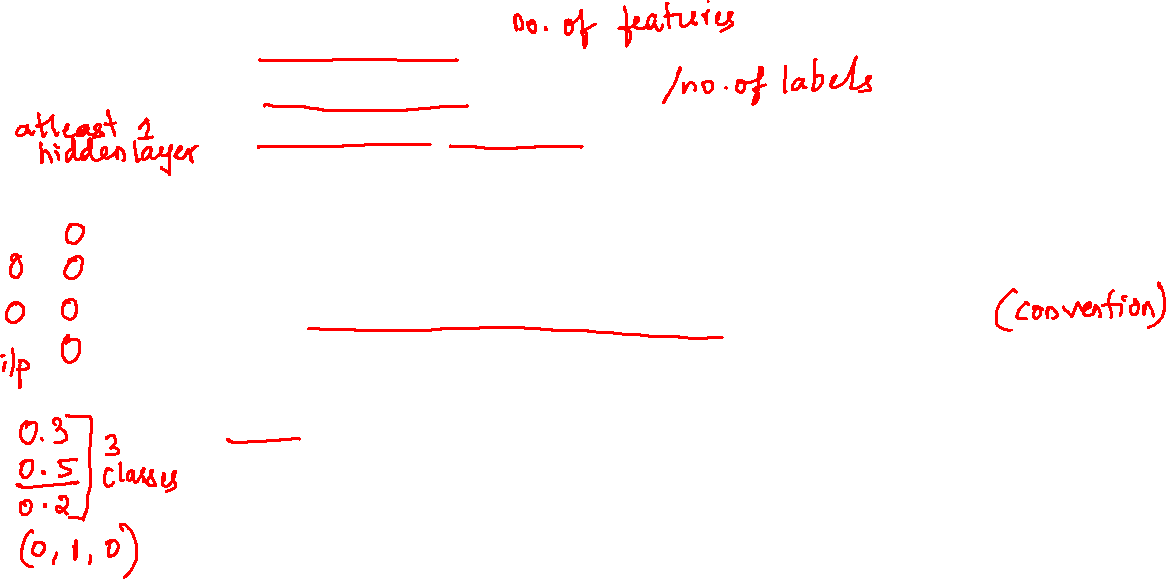 no. of features
/no. of labels
atleast 1
hidden layer
(convention)
i/p
0.3
0.5
0.2
3
classes
(0, 1, 0)